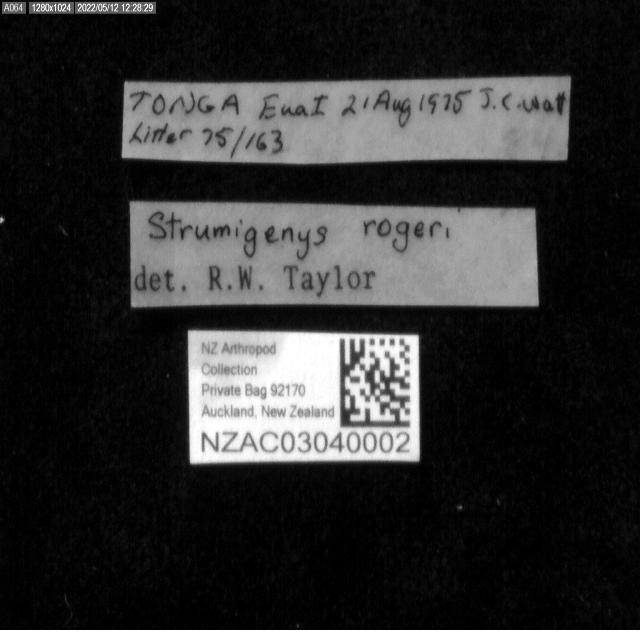 A064 1280x1024 2022/05/12 12:28:29
TONGA Eua I 21 Aug 1975 J.C. Watt
Litter 75/163
Strumigenys rogeri
det. R.W. Taylor
NZ Arthropod
Collection
Private Bag 92170
Auckland, New Zealand
NZAC03040002